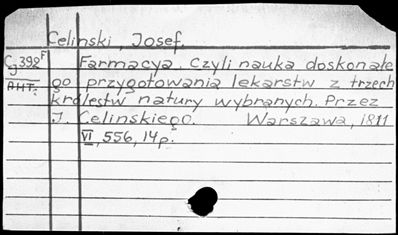 Celinski, Josef.
Cg392F Farmacya. Czyli nauka doskonałe
AHT: go przygotowania lekarstw z trzech
królestw natury wybranych. Przez
J. Celinskiego. Warszawa, 1811
VI, 556, 14p.